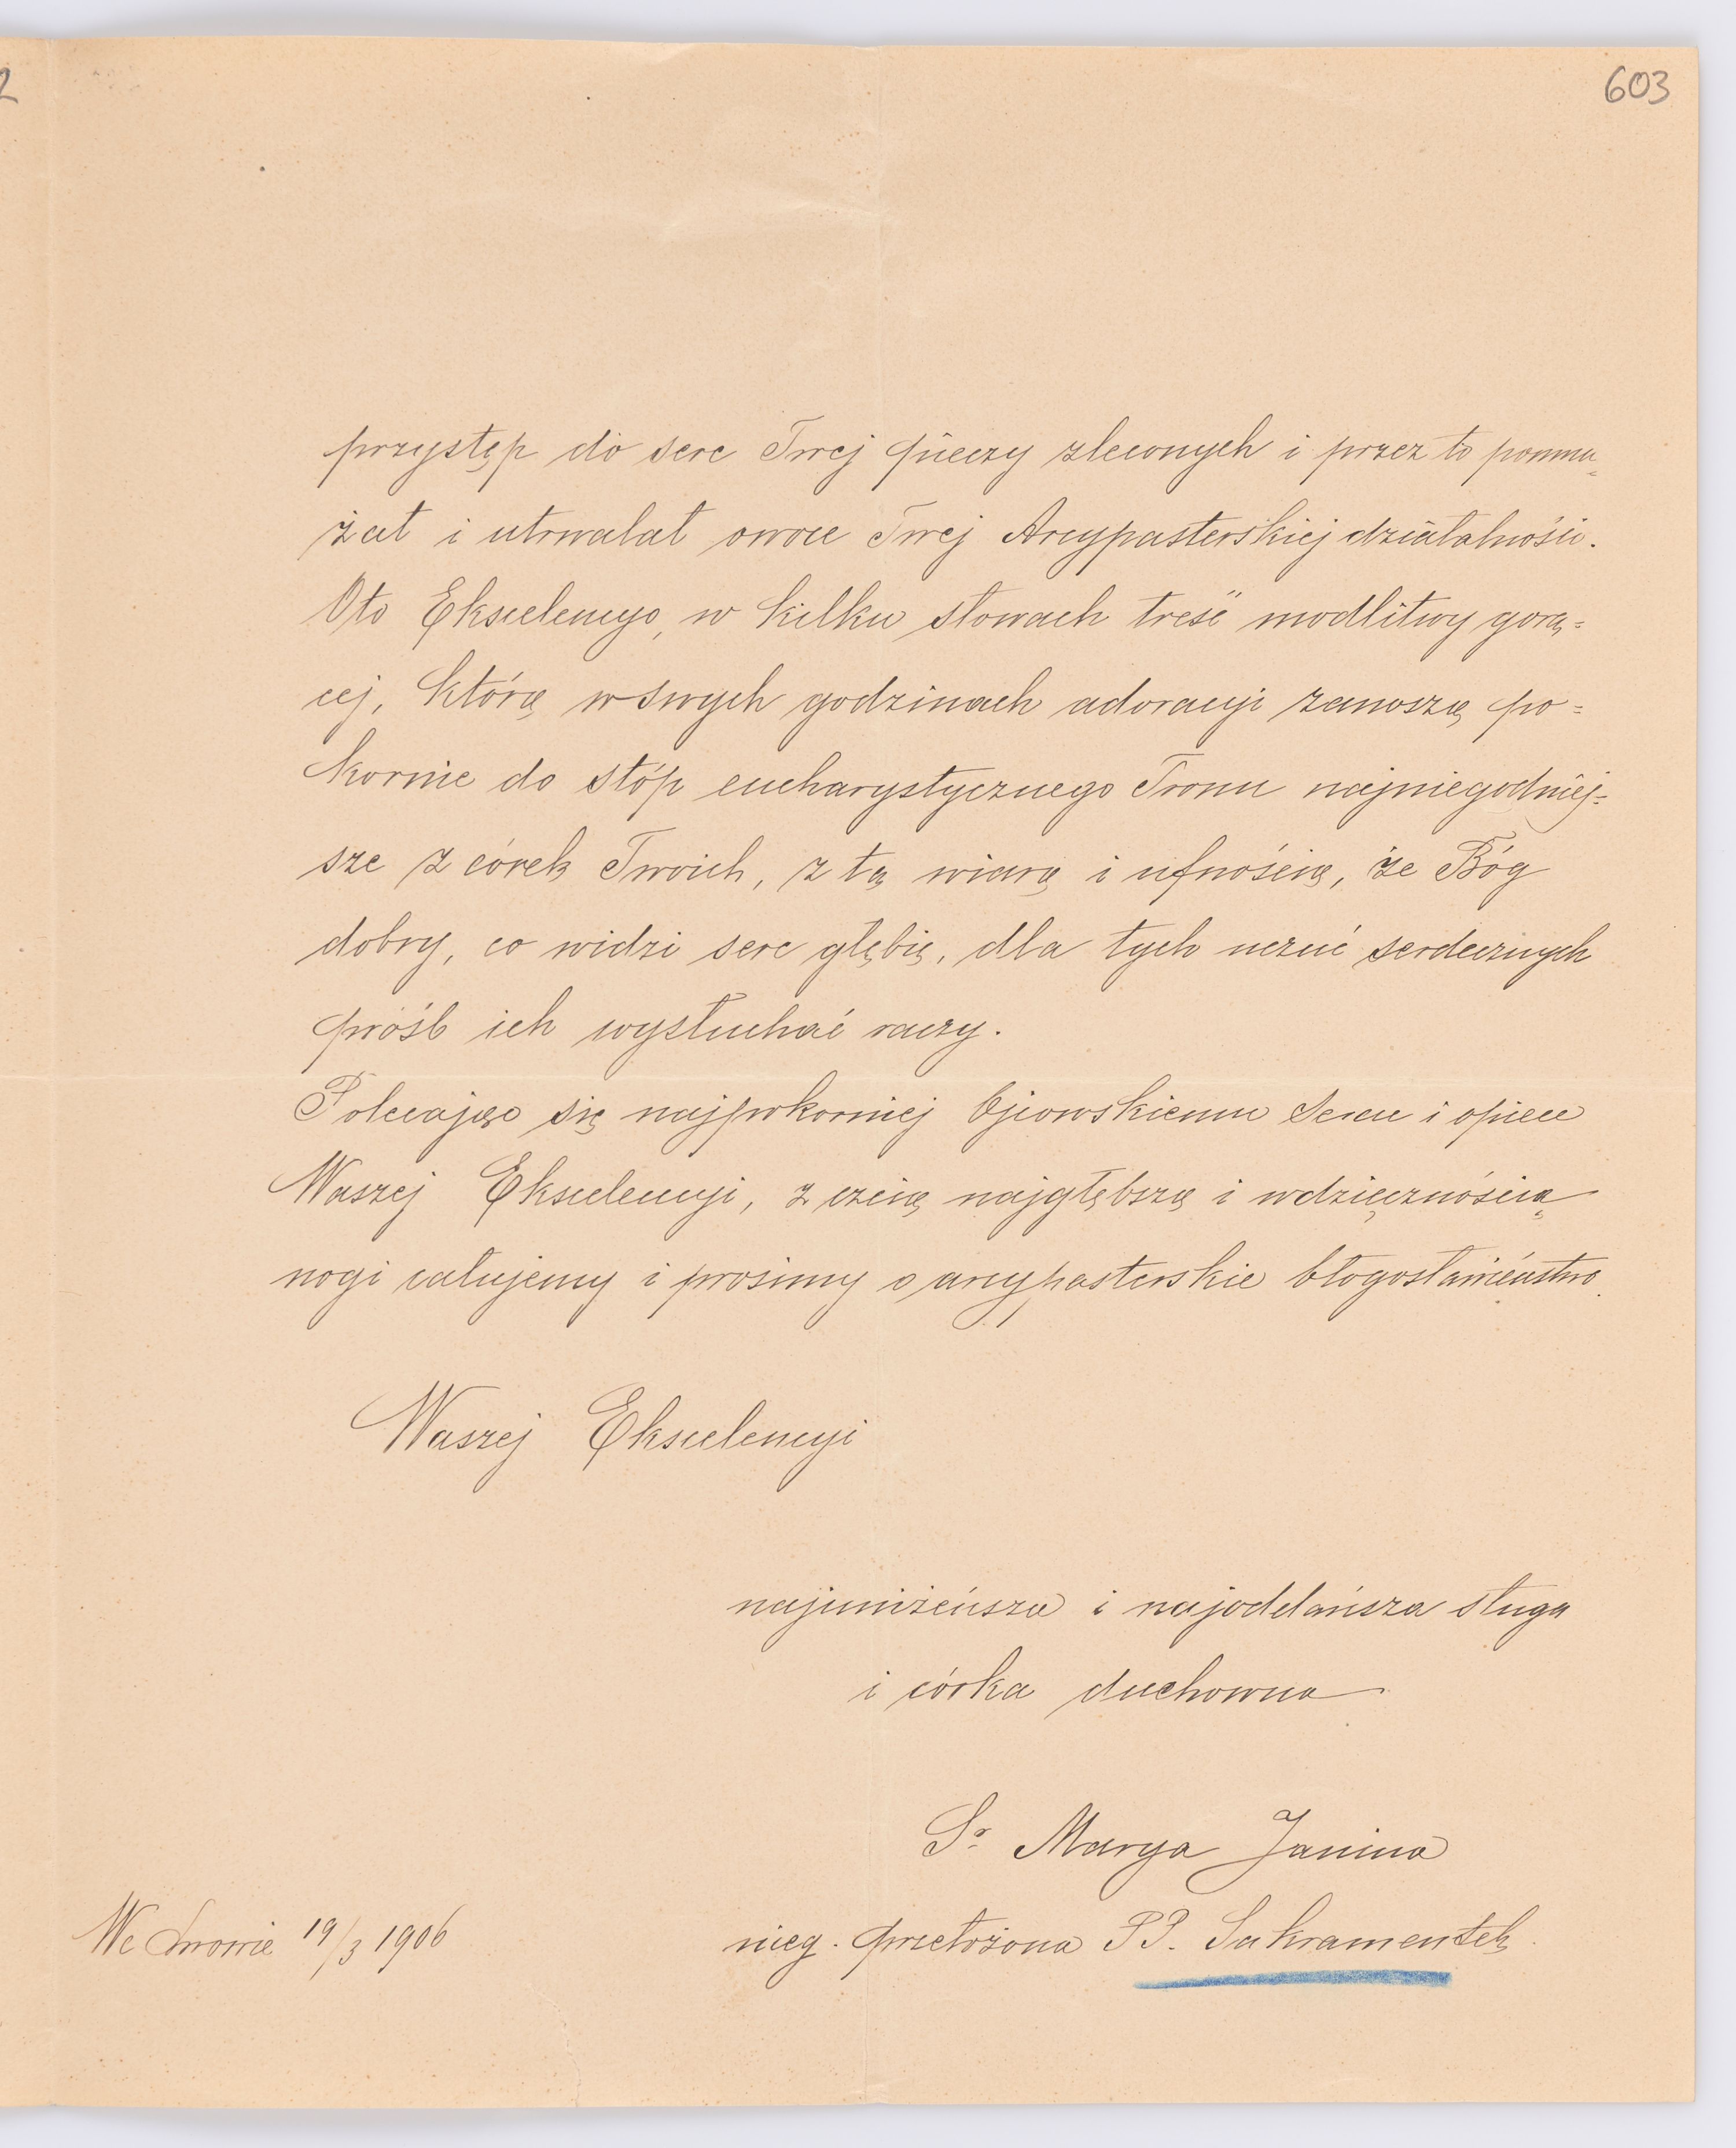 603
przystęp do serc Twej pieczy zleconych i przez to pomna-
żał i utrwalał owoce Twej Arcypasterskiej działalności.
Oto Ekscelencyo, w kilku słowach treść modlitwy gorą=
cej, którą w swych godzinach adoracyi zanoszą po=
kornie do stóp eucharystycznego Tronu najniegodniej=
sze z córek Twoich, z tą wiarą i ufnością, że Bóg
dobry, co widzi serc głębię, dla tych uczuć serdecznych
próśb ich wysłuchać raczy.
Polecając się najpokorniej Ojcowskiemu Sercu i opiece
Waszej Ekscelencyi, z czcią najgłębszą i wdzięcznością
nogi całujemy i prosimy o arcypasterskie błogosławieństwo.
Waszej Ekscelencyi
najuniżeńsza i najoddańsza sługa
i córka duchowna
Sr. Marya Janina
nieg. przełożona PP. Sakramentek.
We Lwowie 19/3 1906